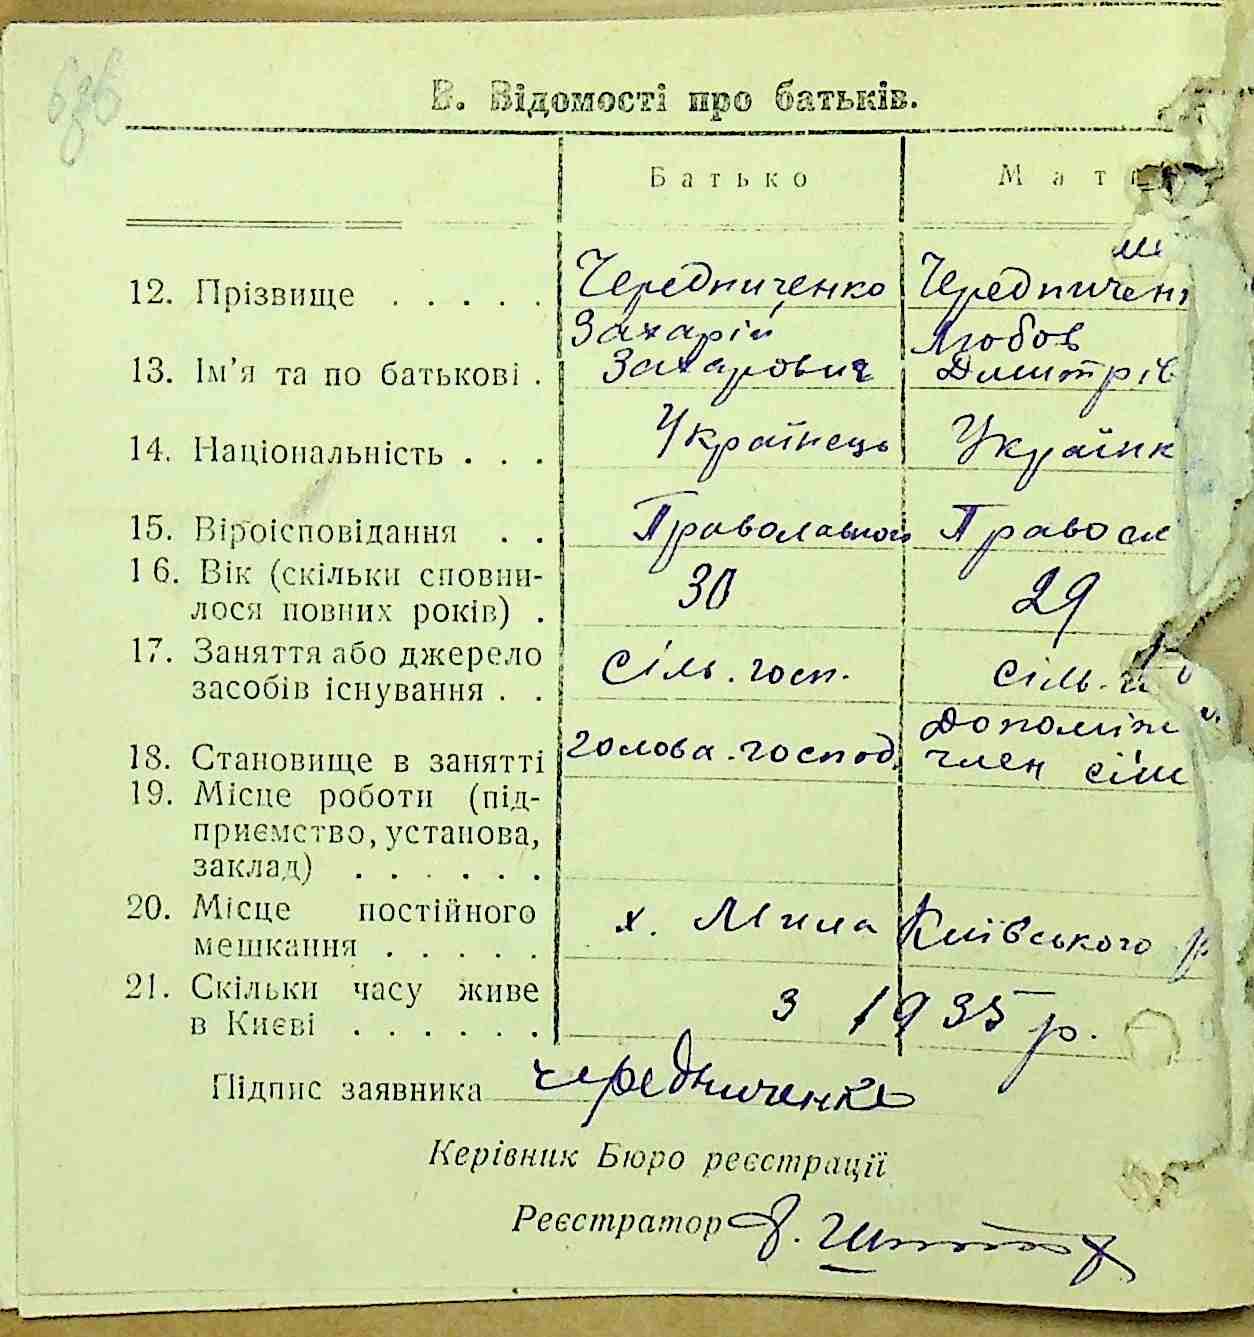 686
В. Відомості про батьків.
Батько Мат
12. Прізвище . . . . . Чередниченко Чередничен
13. Ім'я та по батькові . Захарій Захарович Любов Дмитрів
14. Національність . . . Українець Українк
15. Віроісповідання . . Праволавного Правосл
16. Вік (скільки сповни-
лося повних років) . 30 29
17. Заняття або джерело
засобів існування . . сіль. госп. сіль.
18. Становище в занятті голова. господ. Допоміж член сім
19. Місце роботи (під-
приємство, установа,
заклад) . . . . . .
20. Місце постійного
мешкання . . . . . х. Мила Київського р
21. Скільки часу живе
в Києві . . . . . . з 1935 р.
Підпис заявника Чередниченко
Керівник Бюро реєстрації
Реєстратор